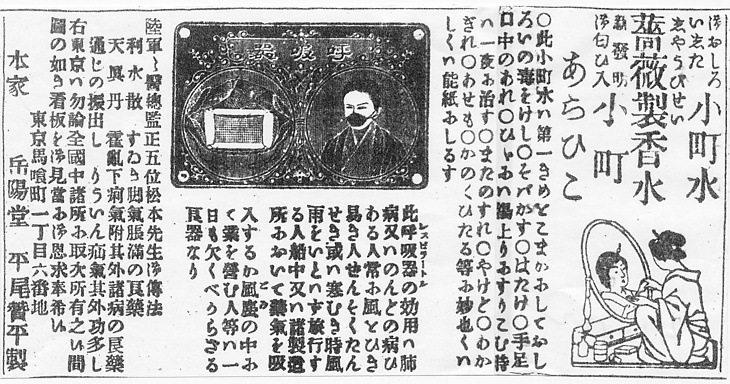 御おしろい志た 小町水
薔薇製香水
新發明 御匂ひ入 小町あらひこ
○此小町水ハ第一きめをこまかおしておし
ろいの毒をけし○そバかす○はたけ○手足
口中のあれ○ひゞ 湯上りおすりこむ時
ハ一夜お治す○またのすれ○やけど○
ぎれ○あせも○かのくひたる等お妙也くハ
しくハ能紙おしるす
呼吸器
レスピラートル
此呼吸器の効用ハ肺
病又ハのんどの病ひ
ある人常お風をひき
易き人せんそくたん
せき或ハ寒むき時風
雨をいとハず旅行す
る人船中又ハ諸製造
所おおいて藥氣を吸
入するか風塵の中お
て業を營む人等ハ一
日も欠くべからざる
良器なり
陸軍々醫總監正五位松本先生御傳法
利水散 すゐき脚氣脹滿の良藥
天眞丹 霍亂下痢氣附其外諸病の良藥
通じの振出し りういん疝氣其外功多し
右東京ハ勿論全國中諸所お取次所有之候間
圖の如き看板を御見當お御求奉希候
東京馬喰町一丁目六番地
本家 岳陽堂 平尾贊平製